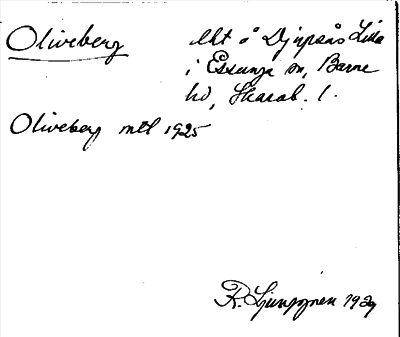 Oliveberg
lht å Djupsås Lilla
i Essunga sn, Barne
hd, Skarab. l.
Oliveberg mtl 1925
R. Ljunggren 1929